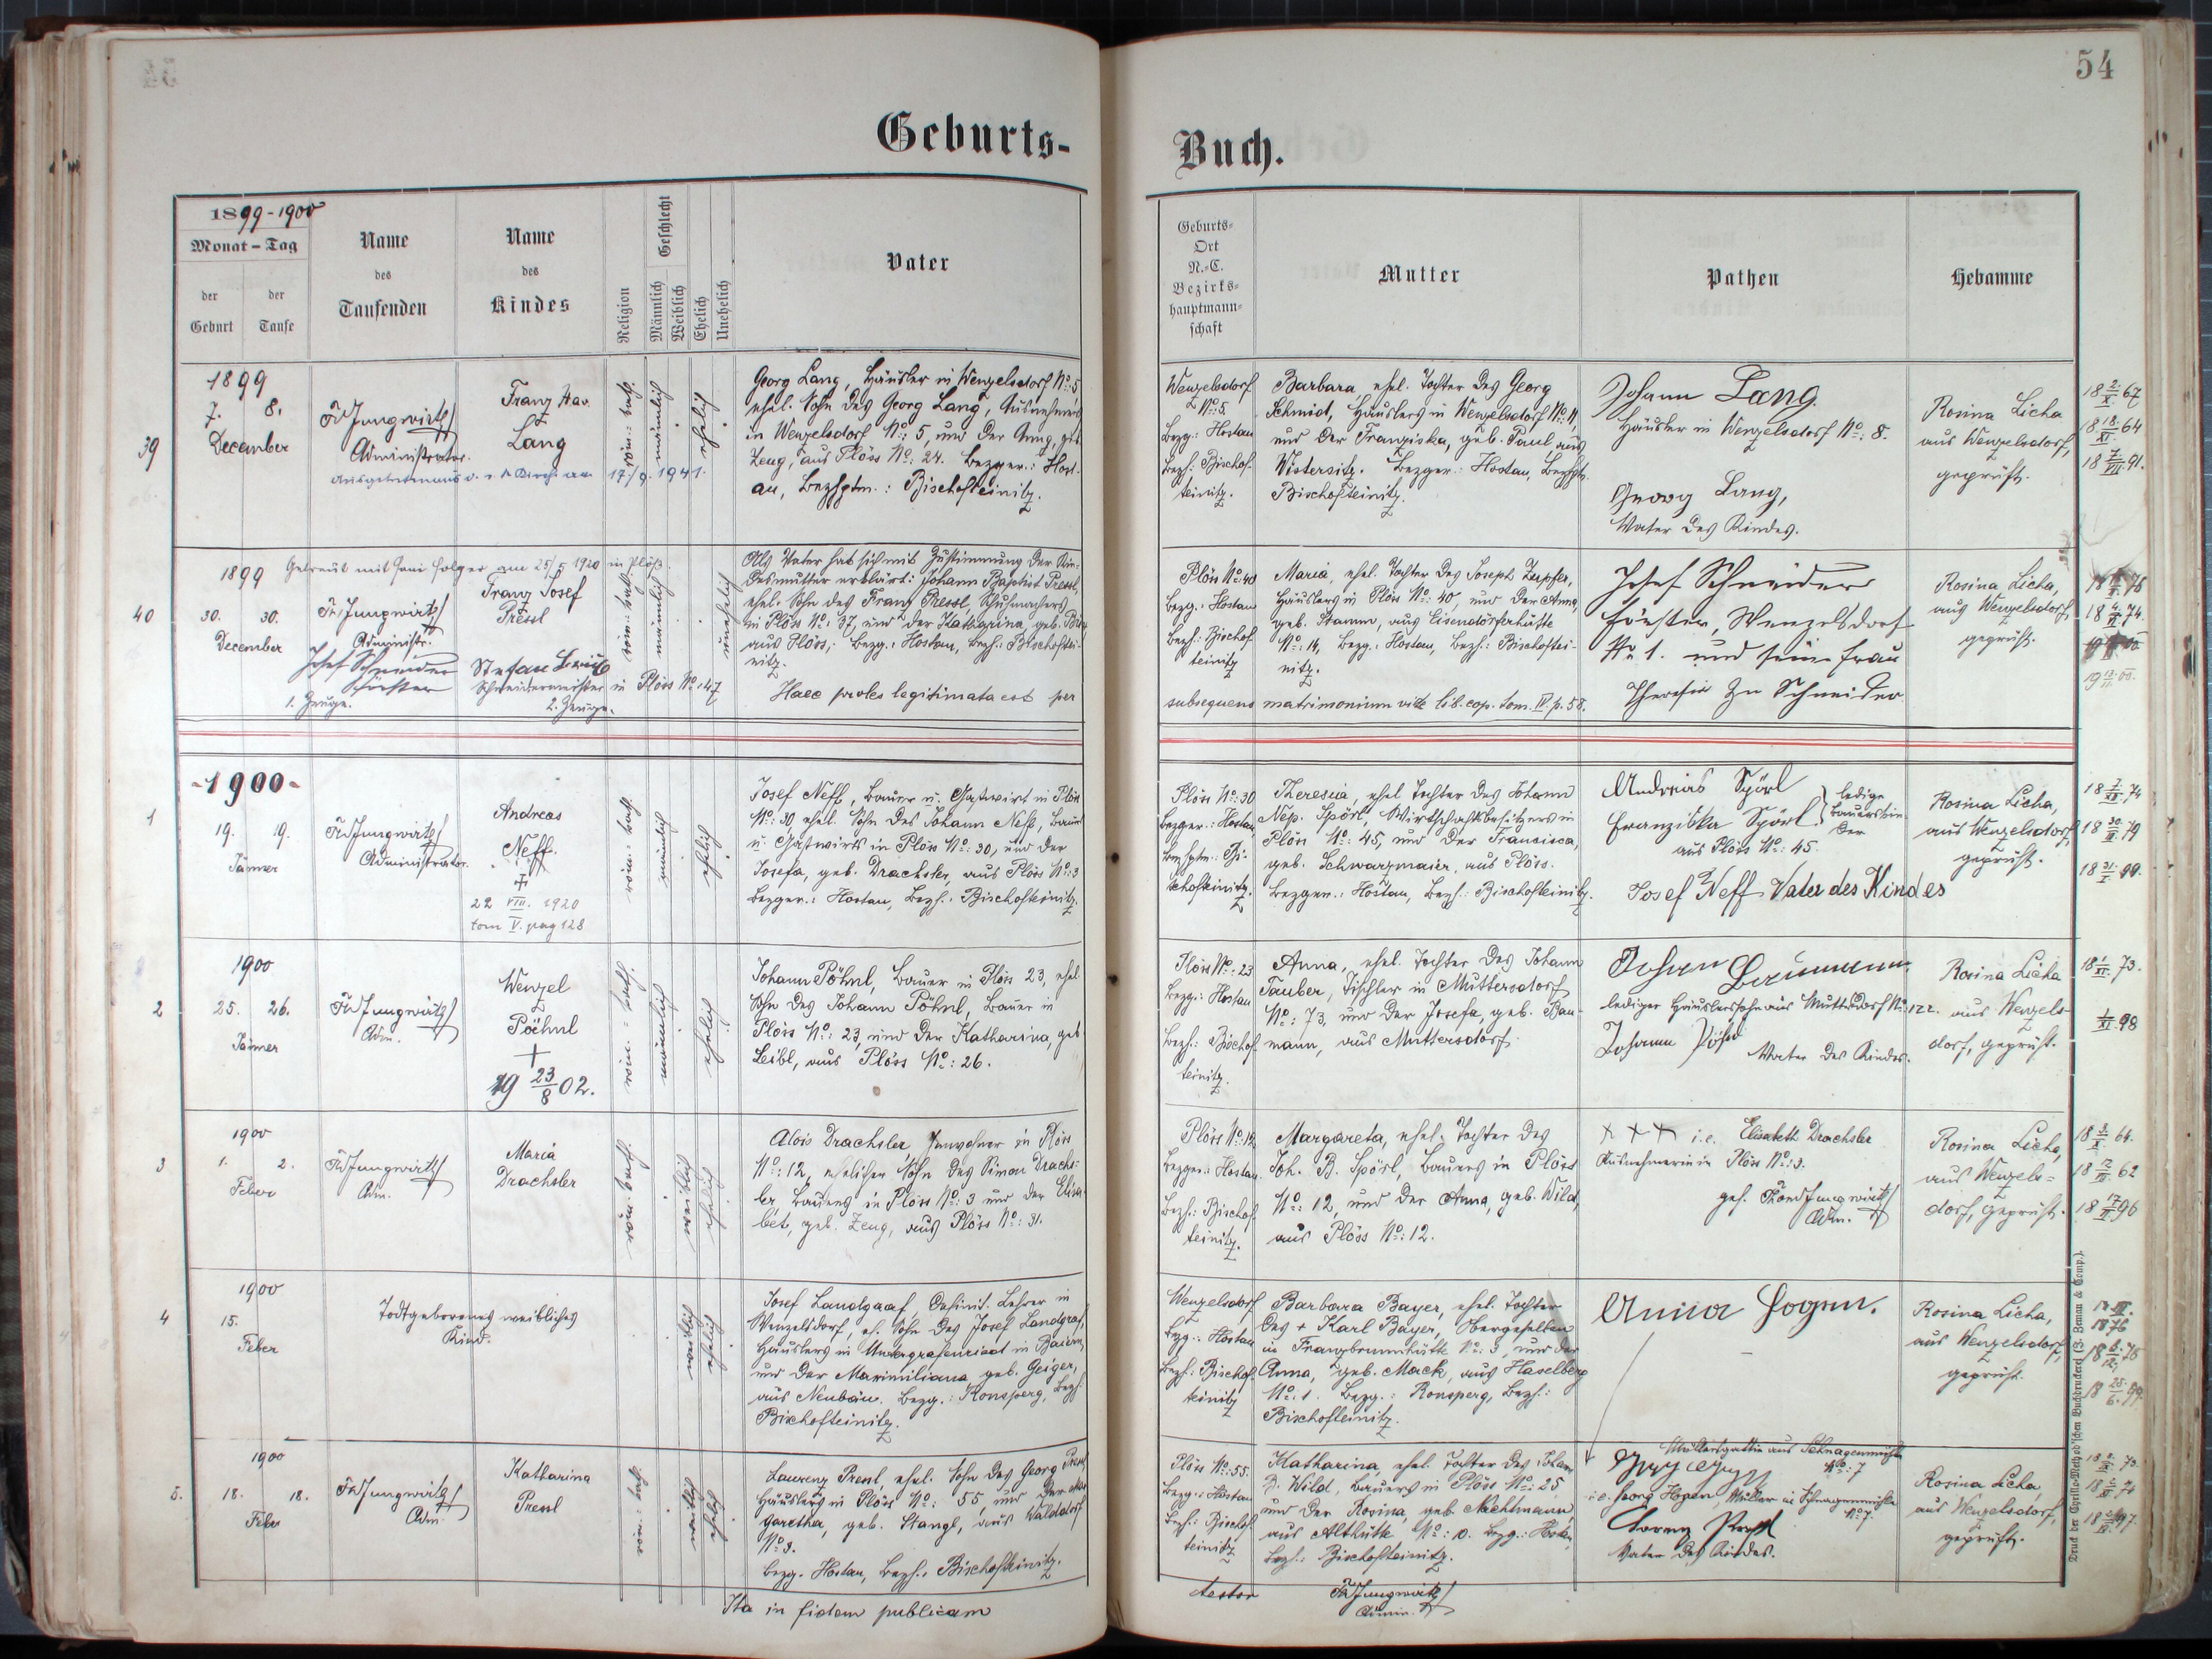 54
Geburts-
Buch.
1899-1900
Monat - Tag
der Geburt
der Taufe
Name des Taufenden
Name des Kindes
Religion
Geschlecht
Männlich
Weiblich
Ehelich
Unehelich
Vater
Geburts-
Ort
N.-C.
Bezirks-
hauptmann-
schaft
Mutter
Pathen
Hebamme
39
1899
7. 8.
December
Fr. Jungwirth
Administrator.
Franz Xav.
Lang
röm.-kath.
männlich
ehelich
ausgetreten aus d. r. k. Kirche am 17./9. 1941.
Georg Lang, Häusler in Wenzelsdorf No: 5
ehel. Sohn des Georg Lang, Ausnehmers
in Wenzelsdorf No: 5, und der Anna, geb.
Zeug, aus Plöss No: 24. Bezger.: Host-
au, Bezhptm.: Bischofteinitz.
Wenzelsdorf
No: 5.
Bezg.: Hostau
Bezh.: Bischof-
teinitz.
Barbara, ehel. Tochter des Georg
Schmidt, Häuslers in Wenzelsdorf No: 11,
und der Franziska, geb. Paul aus
Wistersitz. Bezger.: Hostau, Bezhptm.
Bischofteinitz.
Johann Lang.
Häusler in Wenzelsdorf No: 8.
Georg Lang,
Vater des Kindes.
Rosina Licha
aus Wenzelsdorf,
geprüft.
18 2/X. 67
18 18/XI. 64
18 7/VII. 91.
40
1899
Getraut mit am 25/5 1920 in Plöß
30. 30.
December
Fr. Jungwirth
Administr.
Franz Josef
Pressl
röm.-kath.
männlich
unehelich
Josef Schneider
Förster
1. Zeuge.
Stefan
Schneidermeister in Plöss No: 47
2. Zeuge.
Als Vater hat sich mit Zustimmung der Kin-
desmutter erklärt: Johann Baptist Pressl,
ehel. Sohn des Franz Pressl, Schuhmachers
in Plöss No: 37, und der Katharina, geb.
aus Plöss; Bezg.: Hostau, Bezh.: Bischoftei-
nitz.
Haec proles legitimata est per
subsequens matrimonium vide lib. cop. tom. IV. p. 58.
Plöss No: 40
Bezg.: Hostau
Bezh.: Bischof-
teinitz
Maria, ehel. Tochter des Joseph Zupfer,
Häuslers in Plöss No: 40, und der Anna,
geb. Stamm, aus Eisendorferhütte
No: 14, Bezg.: Hostau, Bezh.: Bischoftei-
nitz.
Josef Schneider
Förster, Wenzelsdorf
No 1. und seine Frau
Theresia Schneider
Rosina Licha,
aus Wenzelsdorf,
geprüft.
-1900-
1
19. 19.
Jänner
Fr. Jungwirth
Administrator.
Andreas
Neff.
22 VIII. 1920
tom V. pag 128
röm.-kath.
männlich
ehelich
Josef Neff, Bauer u. Gastwirt in Plöss
No: 30, ehel. Sohn des Johann Neff, Bauer
u. Gastwirts in Plöss No: 30, und der
Josefa, geb. Drachsler, aus Plöss No: 3
Bezger.: Hostau, Bezh.: Bischofteinitz.
Plöss No: 30
Bezger.: Hostau,
Bezhptm.: Bi-
schofteinitz.
Theresia, ehel Tochter des Johann
Nep. Spörl, Wirthschaftsbesitzers in
Plöss No: 45, und der Francisca,
geb. Schwarzmaier, aus Plöss.
Bezger.: Hostau, Bezh.: Bischofteinitz.
Andreas Spörl
Franziska Spörl
ledige
Bauerskin-
der
aus Plöss No: 45.
Josef Neff Vater des Kindes
Rosina Licha,
aus Wenzelsdorf,
geprüft.
2
1900
25. 26.
Jänner
Fr. Jungwirth
Adm.
Wenzel
Pöhnl
19 23/8 02.
röm.-kath.
männlich
ehelich
Johann Pöhnl, Bauer in Plöss 23, ehel.
Sohn des Johann Pöhnl, Bauer in
Plöss No: 23, und der Katharina, geb
Leibl, aus Plöss No: 26.
Plöss No: 23
Bezg.: Hostau
Bezh.: Bischof-
teinitz.
Anna, ehel. Tochter des Johann
Tauber, Tischler in Muttersdorf
No: 73, und der Josefa, geb. Bau-
mann, aus Muttersdorf.
Johann Baumann
lediger Häuslerssohn aus Muttersdorf No: 122.
Johann Pöhnl
Vater des Kindes.
Rosina Licha
aus Wenzels-
dorf, geprüft.
3
1900
1. 2.
Feber
Fr. Jungwirth
Adm.
Maria
Drachsler
röm.-kath.
weiblich
ehelich
Alois Drachsler, Inwohner in Plöss
No: 12, ehelicher Sohn des Simon Drachs-
ler Bauers in Plöss No: 3 und der Elisa-
bet, geb. Zeug, aus Plöss No: 31.
Plöss No: 12
Bezger.: Hostau.
Bezh.: Bischof-
teinitz.
Margareta, ehel. Tochter des
Joh. B. Spörl, Bauers in Plöss
No: 12, und der Anna, geb. Wild,
aus Plöss No: 12.
+++ i.e. Elisabeth Drachsler
Ausnehmerin in Plöss No: 3.
Jungwirth
Adm.
Rosina Licha,
aus Wenzels-
dorf, geprüft.
4
1900
15.
Feber
Todtgeborenes weibliches
Kind.
weiblich
ehelich
Josef Landgraf, definit. Lehrer in
Wenzelsdorf, eh. Sohn des Josef Landgraf,
Häuslers in Untergrafenried in Baiern,
und der Maximiliana geb. Geiger,
aus Neubäu. Bezg.: Ronsperg, Bezh.
Bischofteinitz.
Wenzelsdorf
Bezg.: Hostau
Bezh.: Bischof-
teinitz
Barbara Bayer, ehel. Tochter
des + Karl Bayer,
in Franzbrunnhütte No: 3, und der
Anna, geb. Mack, aus Haselberg
No: 1. Bezg.: Ronsperg, Bezh.:
Bischofteinitz.
Anna
Müllersgattin aus
No: 7
Rosina Licha,
aus Wenzelsdorf,
geprüft.
5.
1900
18. 18.
Feber
Fr. Jungwirth
Adm.
Katharina
Pressl
röm.-kath.
weiblich
ehelich
Laurenz Pressl, ehel. Sohn des Georg Pressl
Häuslers in Plöss No: 55, und der Mar-
garetha, geb. Stangl, aus Walddorf
No: 3.
Bezg. Hostau, Bezh.: Bischofteinitz.
Plöss No: 55.
Bezg.: Hostau
Bezh.: Bischof-
teinitz
Katharina, ehel. Tochter des Johann
B. Wild, Bauers in Plöss No: 25
und der Rosina, geb. Nachtmann
aus Althütte No: 10. Bezg.: Hostau,
Bezh.: Bischofteinitz.
i.e. Georg
No 7.
Lorenz Pressl
Vater des Kindes.
Rosina Licha,
aus Wenzelsdorf,
geprüft.
Ita in fidem publicam
testor
Fr. Jungwirth
Admin.
Druck der Cyrillo-Method'schen Buchdruckerei (J. Zeman & Comp.).